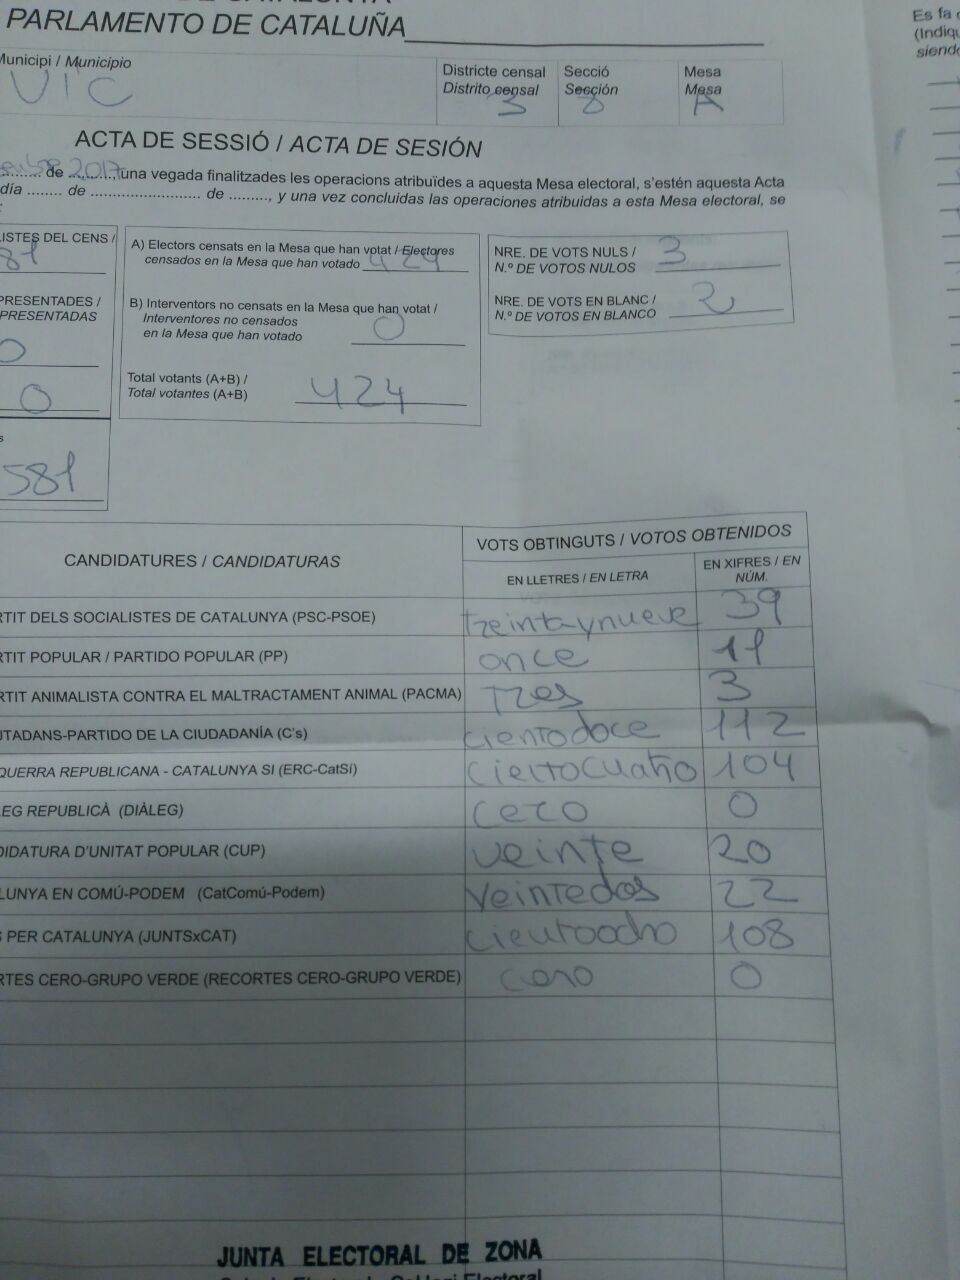 PARLAMENTO DE CATALUÑA
Municipi / Municipio
VIC
Districte censal
Distrito censal
3
Secció
Sección
8
Mesa
Mesa
A
ACTA DE SESSIÓ / ACTA DE SESIÓN
de 2017, una vegada finalitzades les operacions atribuïdes a aquesta Mesa electoral, s'estén aquesta Acta
día ........ de ........................... de ........., y una vez concluidas las operaciones atribuidas a esta Mesa electoral, se
LISTES DEL CENS /
81
PRESENTADES /
PRESENTADAS
0
0
581
A) Electors censats en la Mesa que han votat / Electores
censados en la Mesa que han votado 424
B) Interventors no censats en la Mesa que han votat /
Interventores no censados
en la Mesa que han votado 0
Total votants (A+B) /
Total votantes (A+B) 424
NRE. DE VOTS NULS /
N.º DE VOTOS NULOS 3
NRE. DE VOTS EN BLANC /
N.º DE VOTOS EN BLANCO 2
Es fa
(Indiqu
siend
CANDIDATURES / CANDIDATURAS
VOTS OBTINGUTS / VOTOS OBTENIDOS
EN LLETRES / EN LETRA
EN XIFRES / EN
NÚM.
RTIT DELS SOCIALISTES DE CATALUNYA (PSC-PSOE) treinta y nueve 39
RTIT POPULAR / PARTIDO POPULAR (PP) once 11
RTIT ANIMALISTA CONTRA EL MALTRACTAMENT ANIMAL (PACMA) Tres 3
UTADANS-PARTIDO DE LA CIUDADANÍA (C's) ciento doce 112
QUERRA REPUBLICANA - CATALUNYA SI (ERC-CatSí) ciento cuatro 104
LEG REPUBLICÀ (DIÀLEG) cero 0
DIDATURA D'UNITAT POPULAR (CUP) veinte 20
LUNYA EN COMÚ-PODEM (CatComú-Podem) Veintedos 22
S PER CATALUNYA (JUNTSxCAT) ciento ocho 108
RTES CERO-GRUPO VERDE (RECORTES CERO-GRUPO VERDE) cero 0
JUNTA ELECTORAL DE ZONA